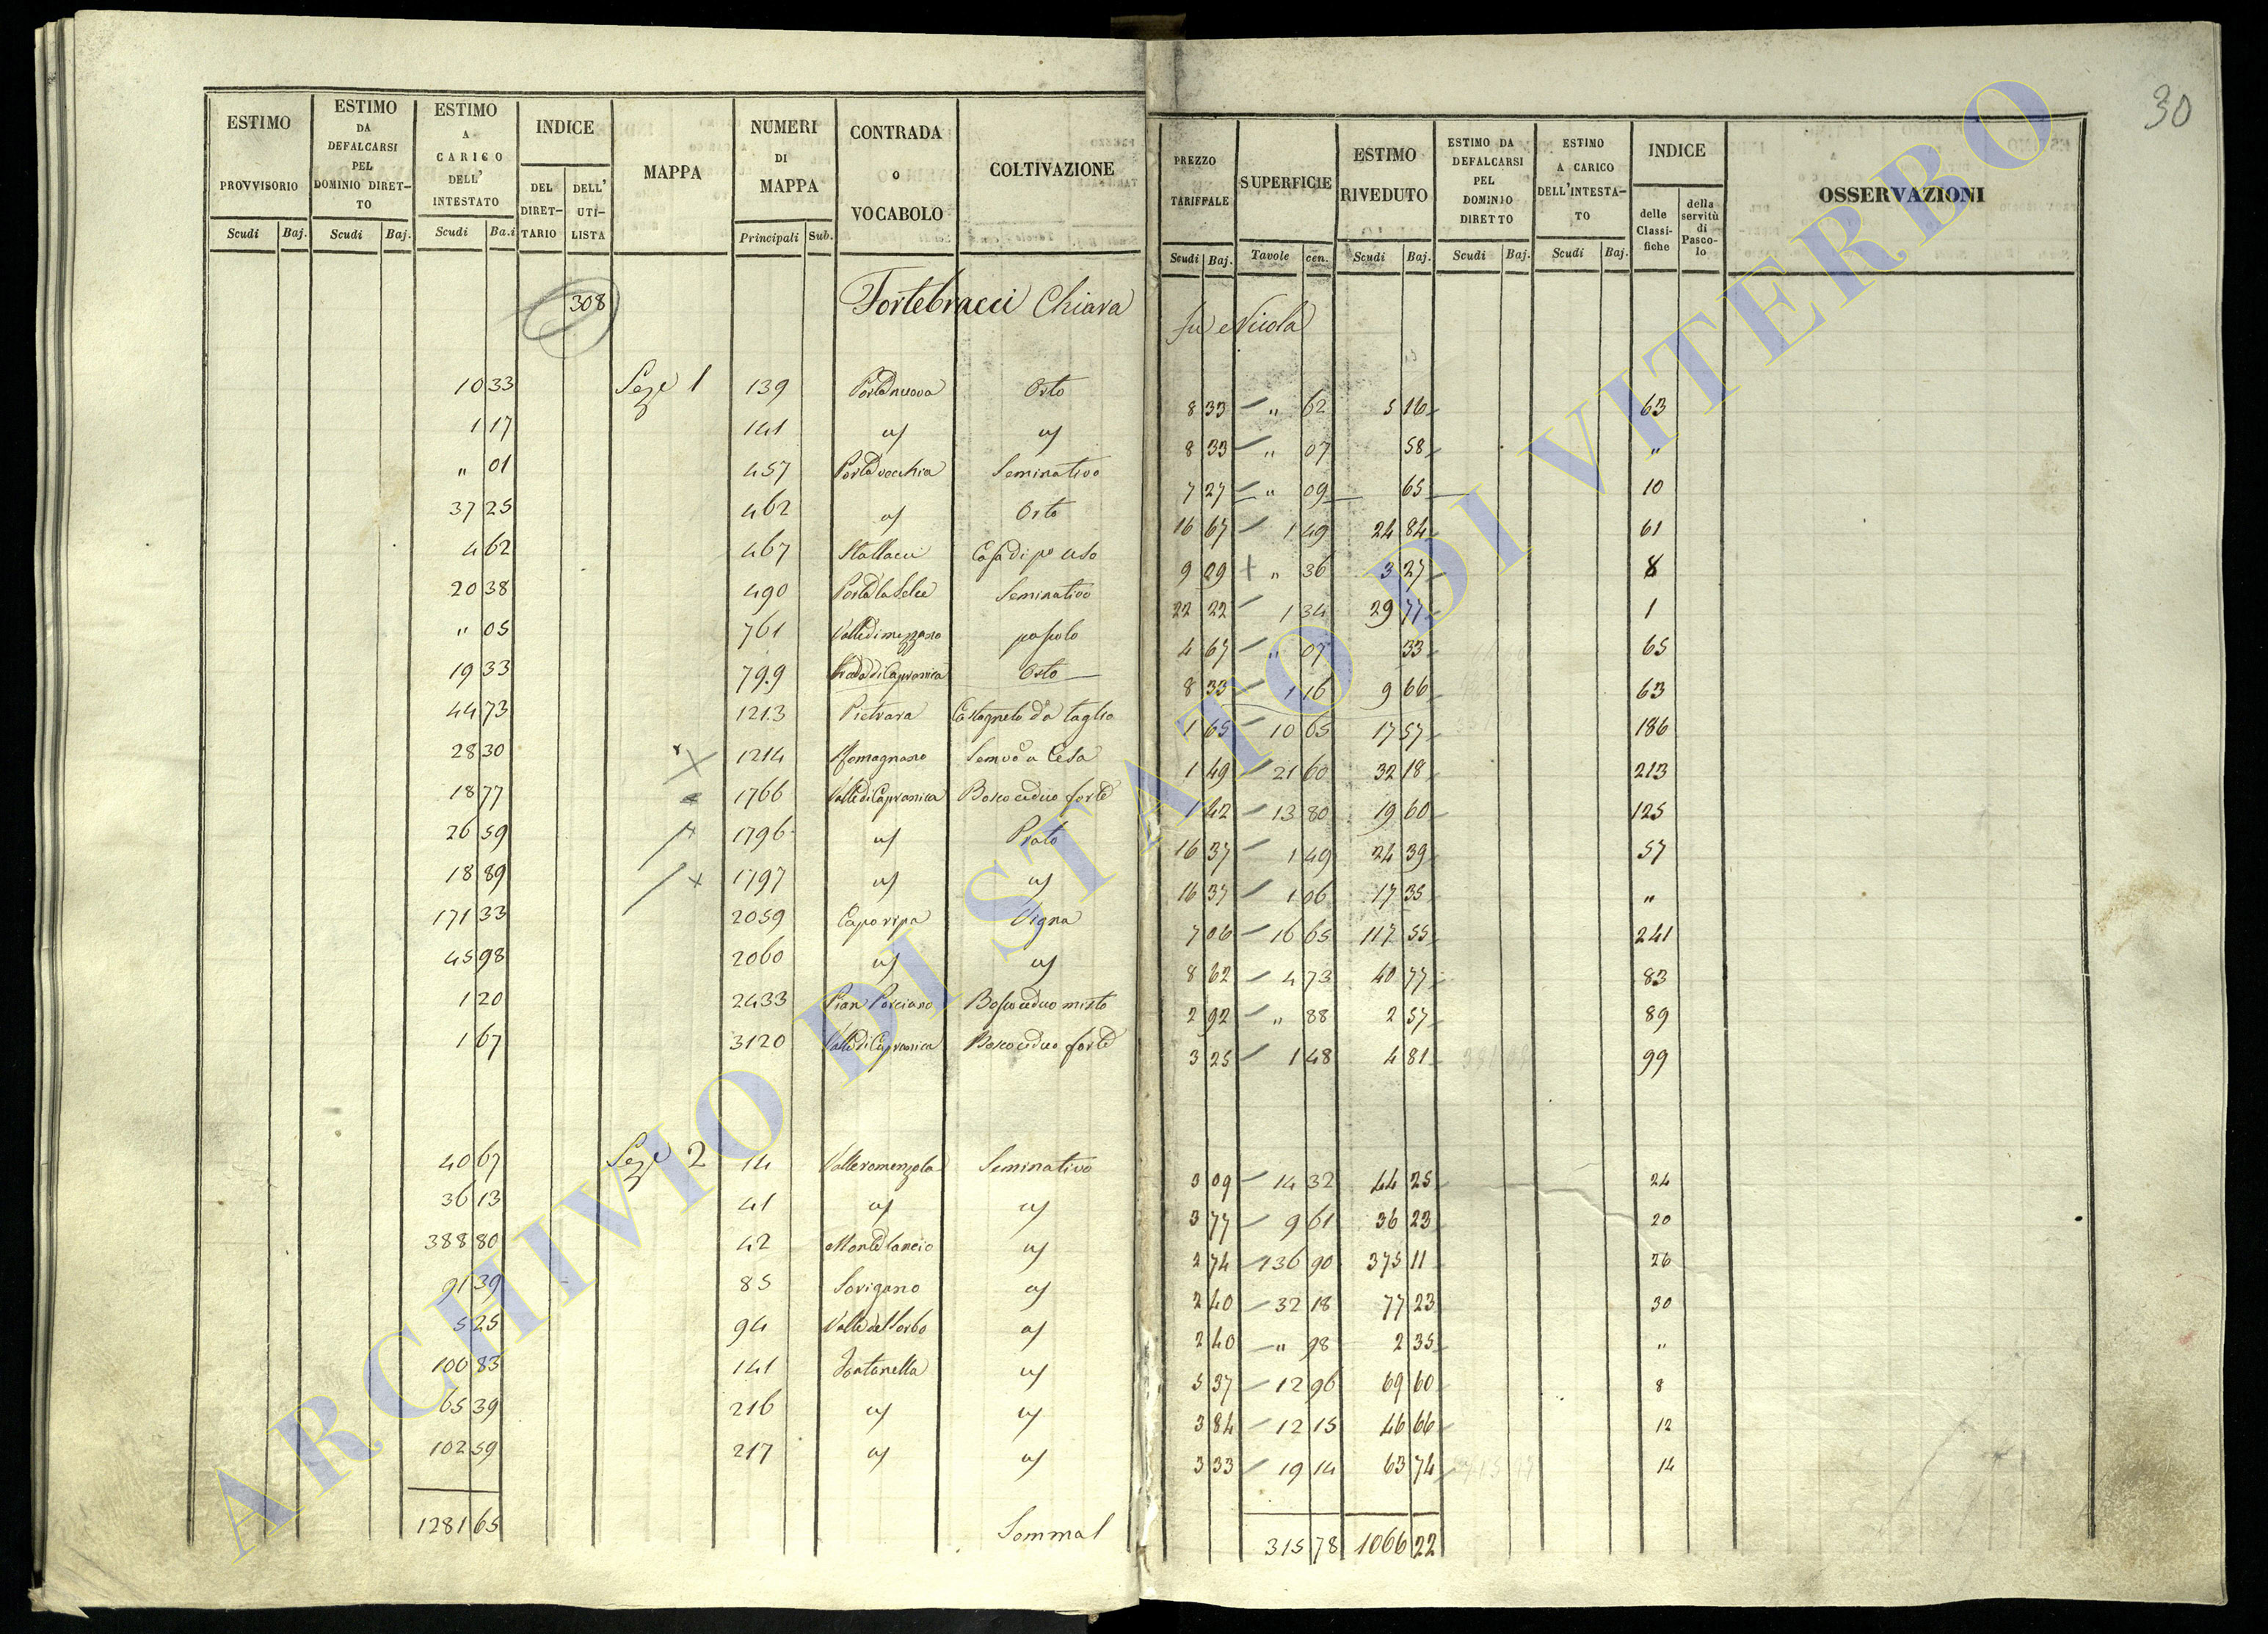 30
ESTIMO PROVVISORIO Scudi Baj.
ESTIMO DA DEFALCARSI PEL DOMINIO DIRET- TO Scudi Baj.
ESTIMO A CARICO DELL' INTESTATO Scudi Ba.i
INDICE DEL DIRET- TARIO DELL' UTI- LISTA
MAPPA
NUMERI DI MAPPA Principali Sub.
CONTRADA O VOCABOLO
COLTIVAZIONE
PREZZO TARIFFALE Scudi Baj.
SUPERFICIE Tavole cen.
ESTIMO RIVEDUTO Scudi Baj.
ESTIMO DA DEFALCARSI PEL DOMINIO DIRETTO Scudi Baj.
ESTIMO A CARICO DELL'INTESTA- TO Scudi Baj.
INDICE delle Classi- fiche della servitù di Pasco- lo
OSSERVAZIONI
308 Fortebracci Chiara fu Nicola
10 33 Sez.e 1 139 Porta nuova Orto 8 33 " 62 5 16 63
1 17 141 8 33 " 07 58 "
" 01 457 Porta vecchia Seminativo 7 27 " 09 65 10
37 25 462 Orto 16 67 1 49 24 84 61
4 62 467 Casa di po uso 9 09 " 36 3 27 8
20 38 490 Porta la Selce Seminativo 22 22 1 34 29 77 1
" 05 761 Valle di mezzano pascolo 4 67 " 07 33 65
19 33 799 Strada di Capranica Orto 8 33 1 16 9 66 63
44 73 1213 Pietrara Castagneto da taglio 1 65 10 65 17 57 186
28 30 1214 Romagnano Semvo a Cesa 1 49 21 60 32 18 213
18 77 1766 Valle di Capranica Bosco ceduo forte 1 42 13 80 19 60 125
26 59 1796 Prato 16 37 1 49 24 39 57
18 89 1797 16 37 1 06 17 35 "
171 33 2059 Caporipa Vigna 7 06 16 65 117 55 241
45 98 2060 8 62 4 73 40 77 83
1 20 2433 Pian Porciano Bosco ceduo misto 2 92 " 88 2 57 89
1 67 3120 Valle di Capranica Bosco ceduo forte 3 25 1 48 4 81 99
40 67 Sez.e 2 14 Valleromenzola Seminativo 3 09 14 32 44 25 24
36 13 41 3 77 9 61 36 23 20
388 80 42 Monte lancio 2 74 136 90 375 11 26
91 39 85 Sorigano 2 40 32 18 77 23 30
5 25 94 Valle del Sorbo 2 40 " 98 2 35 "
100 83 141 Fontanella 5 37 12 96 69 60 8
65 39 216 3 84 12 15 46 66 12
102 59 217 3 33 19 14 63 74 14
1281 65 Somma 315 78 1066 22
ARCHIVIO DI STATO DI VITERBO